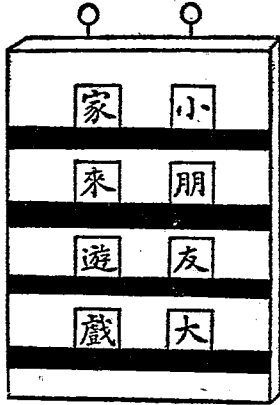 小朋友大
家來遊戲